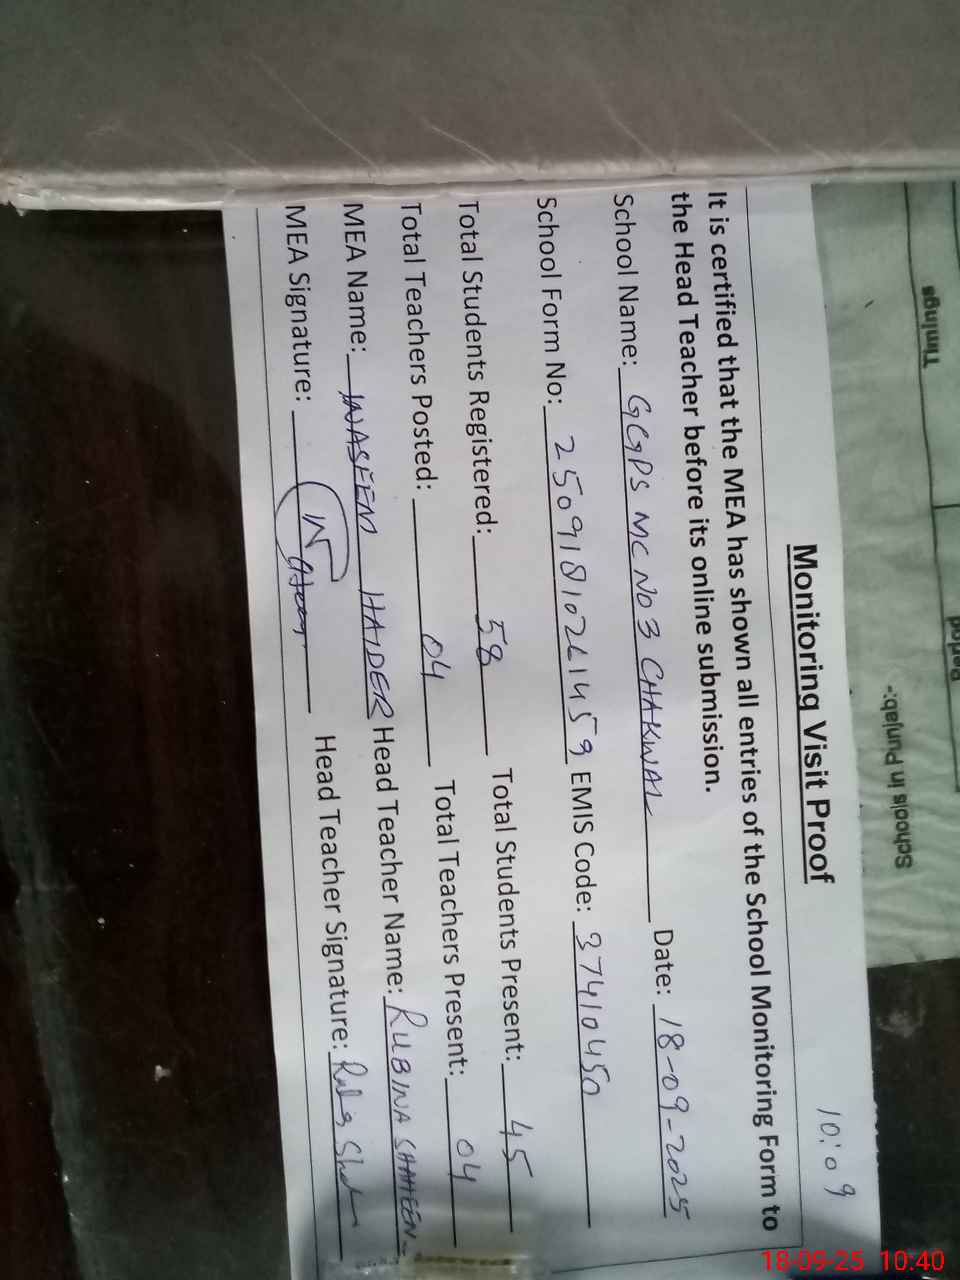 10:09
Monitoring Visit Proof
It is certified that the MEA has shown all entries of the School Monitoring Form to
the Head Teacher before its online submission.
School Name: GGPS MC NO 3 CHAKWAL Date: 18-09-2025
School Form No: 25091810261459 EMIS Code: 37410450
Total Students Registered: 58 Total Students Present: 45
Total Teachers Posted: 04 Total Teachers Present: 04
MEA Name: WASEEM HAIDER Head Teacher Name: RUBINA SHAHEEN
MEA Signature: Head Teacher Signature:
Timings
Period
Schools in Punjab:-
18-09-25 10:40